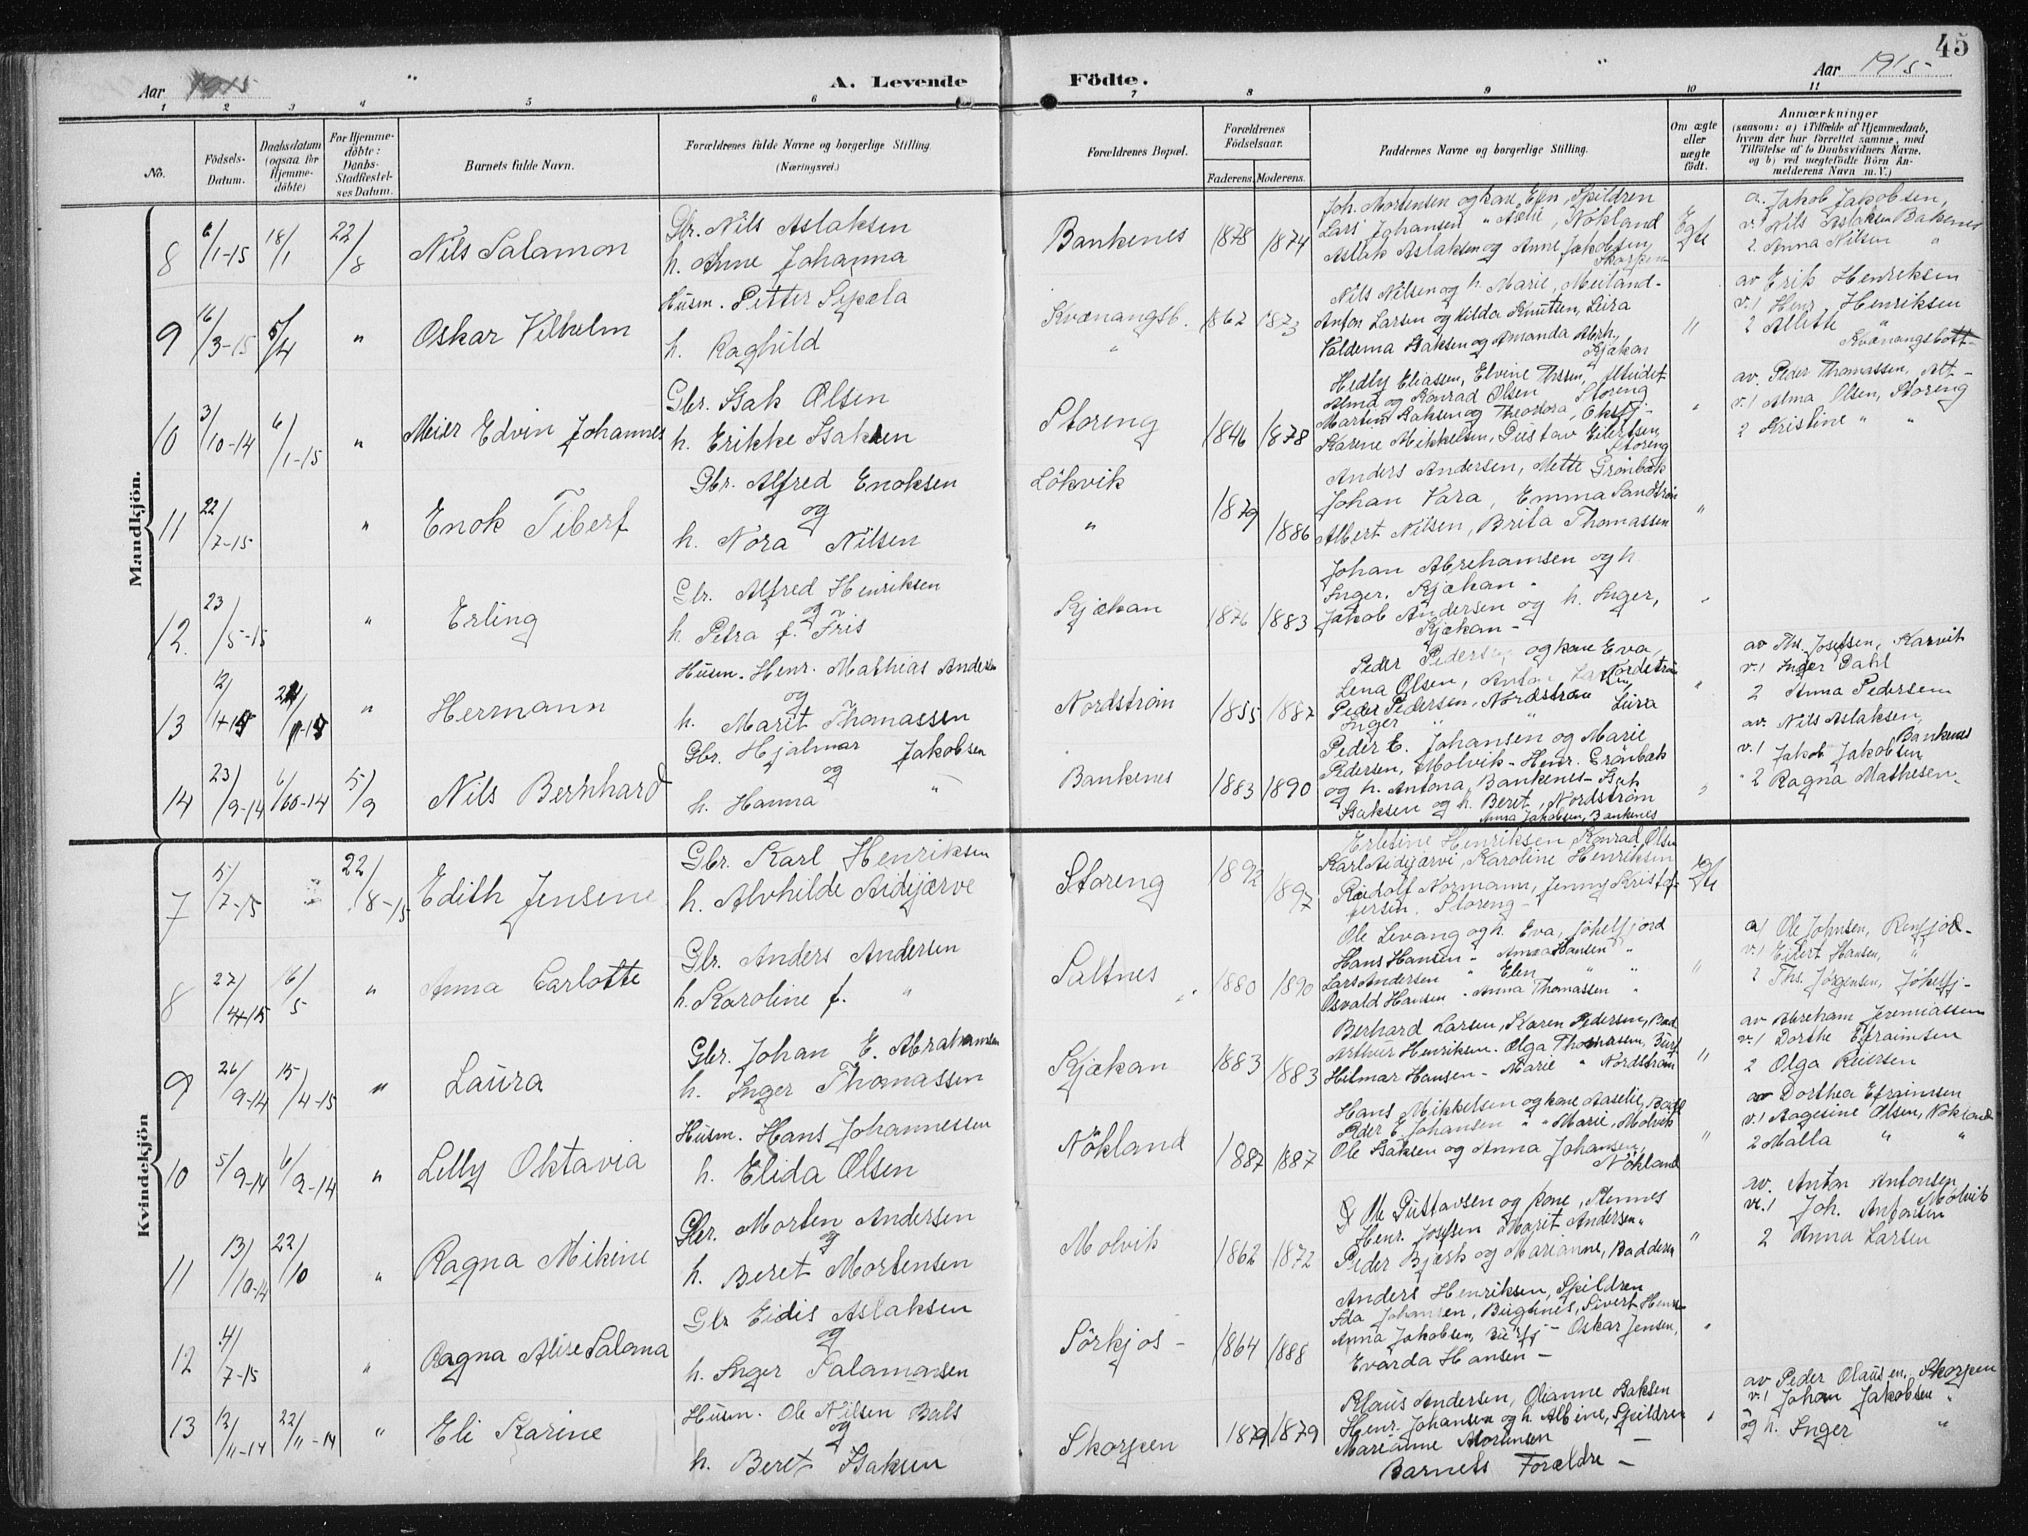 45
Aar 1915 " A. Levende Födte. " Aar 1915
1 2 3 4 5 6 7 8 9 10 11
No.
Födsels-Datum.
Daabsdatum (ogsaa for Hjemme-döbte)
For Hjemme-döbte: Daabs-Stadfæstel-ses Datum.
Barnets fulde Navn.
Forældrenes fulde Navne og borgerlige Stilling.
(Næringsvei.)
Forældrenes Bopæl.
Forældrenes Födselsaar.
Faderens. Moderens.
Faddernes Navne og borgerlige Stilling.
Om ægte eller uægte født.
Anmærkninger
(saasom: a) i Tilfælde af Hjemmedaab,
hvem der har forrettet samme, med
Tilföielse af to Daabsvidners Navne.
og b) ved uægtefödte Börn An-
melderens Navn m. V.)
Mandkjön.
8 6/1-15 18/1 22/8 Nils Salamon
Gbr. Nils Aslaksen
h. Anne Johanna
Bankenes 1878 1874
Joh. Mortensen og kone Elen, Spildren
Lars Johansen " , Nökland
Aslak Aslaksen og Anne Jakobsen,
Skorpen
Egte
a. Jakob Jakobsen,
v. 1 Nils Aslaksen Bakenes
2 Anna Nilsen "
9 16/3-15 5/4 " Oskar Vilhelm
Husm. Petter Sepæla
h. Raghild
Kvænangsb. 1862 1873
"
Nils Nilsen og h. Marie, Meiland-
Anton Larsen og Hilda Knutsen, Lura
Valdema Isaksen og Amanda Abrh.,
Kjækan
"
av Erik Henriksen
v. 1 Henr. Henriksen
2 Alette "
Kvænangsbott-
10 3/10-14 6/1-15 " Meier Edvin Johannes
Gbr. Isak Olsen
h. Erikke Isaksen
Storeng 1846 1878
Hedly Eliassen, Elvine Thssen, Alteidet
Alma og Konrad Olsen Storeng
Martin Isaksen og Theodora,
Karine Mikkelsen, Gustav Eilertsen,
Storeng
"
av. Peder Thomassen, Alt-
v. 1 Alma Olsen, Storeng
2 Kristine " "
11 22/7-15 " Enok Tibert
Gbr. Alfred Enoksen
og
h. Nora Nilsen
Lökvik
" 1879 1886
Anders Andersen, Mette Grönbæk
Johan Vara, Emma Sandström
Albert Nilsen, Brita Thomassen
"
12. 23/5-15 " Erling
Gbr. Alfred Henriksen
og
h. Petra f. Fris
Kjækan 1876 1883
Johan Abrehamsen og h.
Inger, Kjækan -
Jakob Andersen og h. Inger,
Kjækan -
"
13 12/ " Hermann
Husm. Henr. Mathias Andersen
og
h. Marit Thomassen
Nordström 1855 1887
Peder Pedersen og kone Eva,
Lena Olsen, Anton Larsen Nordström
Peder Pedersen, Nordström
Inger " " Lura
"
av Ths. Josefsen, Karvik
v. 1 Inger Dahl
2 Anna Pedersen
14 23/9-14 5/9 Nils Bernhard
Gbr. Hjalmar Jakobsen
og
h. Hanna "
Bankenes 1883 1890
Peder E. Johansen og Marie
Pedersen, Molvik - Henr. Grönbæk
og h. Antona, Bankenes - Isak
Isaksen og h. Beret, Nordström
Anna Jakobsen, Bankenes
"
av. Nils Aslaksen,
Bankenes
v. 1 Jakob Jakobsen
" 2 Ragna Mathesen -
Kvindekjön
7 5/7-15 22/8-15 Edith Jensine
Gbr. Karl Henriksen
h. Alvhilde Aidijærve
Storeng 1892 1897
Henriksen, Konrad Olsen
Karl Aidijærvi, Karoline Henriksen
Rudolf Normann, Jenny Kristof-
fersen, Storeng -
Egte
8 27/4-15 16/5 " Anna Carlotte
Gbr. Anders Andersen
h. Karoline f. "
Saltnes 1880 1890
Ole Levang og h. Eva, Jökelfjord
Hans Hansen - Anna Hansen "
Lars Andersen " Elen " "
Osvald Hansen - Anna Thomassen "
"
a) Ole Johnsen,
v. 1 Eilert Hansen, "
2 Ths. Jørgensen, Jökelfj-
9 26/9-14 15/4-15 " Laura
Gbr. Johan E. Abrahamsen
h. Inger Thomassen
Kjækan 1883 1883
Berhard Larsen, Karen Pedersen, Bad
Arthur Henriksen - Olga Thomasen, Burf
Hilmar Hansen - Marie " Nordström
"
av Abreham Jeremiassen
v. 1 Dorthe Efraimsen
2 Olga Reiersen
10 5/9-14 6/9-14 " Lelly Oktavia
Husm. Hans Johannessen
h. Elida Olsen
Nökland 1887 1887
Hans Mikkelsen og kone Aaselie,
Peder E. Johansen " " Marie, Molvik
Ole Isaksen og Anna Johansen,
Nökland
"
av Dorthea Efraimsen
v. 1 Aagesine Olsen, Nökland
2 Malla " "
11 13/10-14 22/10 " Ragna Mikine
Gbr. Morten Andersen
og
h. Beret Mortensen
Molvik 1862 1872
Ole Gustavsen og kone, Stennes
Henr. Josefsen Marit Andersen "
Peder Bjørk og Marianne, Badderen
"
av. Anton Antonsen
Molvik
v. 1 Joh. Antonsen
2 Anna Larsen
12 4/7-15 " Ragna Alise Salama
Gbr. Eidis Aslaksen
og
h. Inger Salamonsen
Sörkjos - 1864 1888
Anders Henriksen, Spildren
Ida Johansen, Bugtnes, Sivert
Anna Jakobsen, Burfj - Oskar Jensen,
Evarda Hansen -
"
13 12/11-14 22/11-14 " Eli Karine
Husm. Ole Nilsen Bals
og
h. Beret Isaksen
Skorpen 1879 1879
Klaus Andersen, Olianne Isaksen
Henr. Johansen og h. Albine, Spildren
Marianne Mortensen -
Barnets Forældre -
"
av Peder Olausen, Skorpen
v. 1 Johan Jakobsen "
og h. Inger "